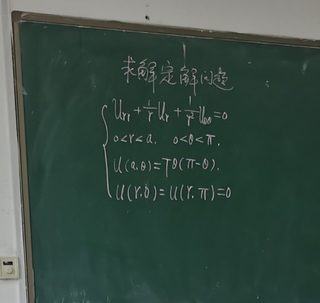 求解定解问题
U_rr + 1/r U_r + 1/r² U_θθ = 0
0<r<a, 0<θ<π,
U(a,θ)=Tθ(π-θ),
U(r,0)=U(r,π)=0